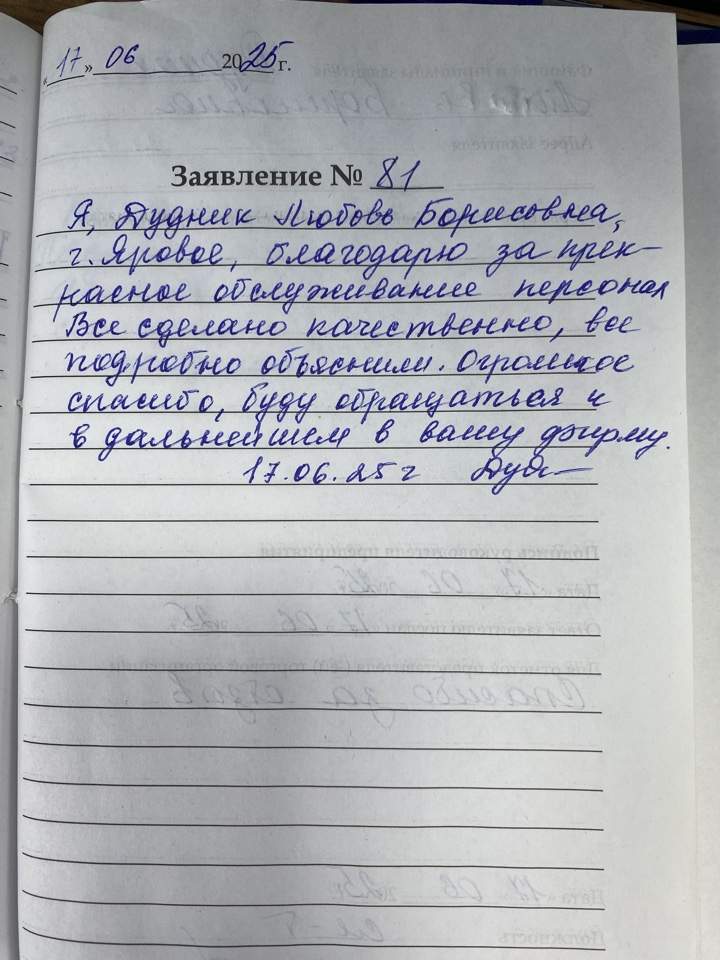 «17» 06 2025 г.
Заявление № 81
Я, Дудник Любовь Борисовна,
г. Яровое, благодарю за прек-
расное обслуживание персонал
Все сделано качественно, все
подробно объяснили. Огромное
спасибо, буду обращаться и
в дальнейшем в вашу фирму.
17.06.25 г